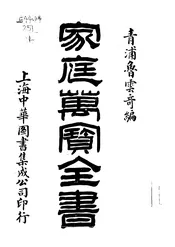 青浦魯雲奇編
家庭萬寶全書
上海中華圖書集成公司印行